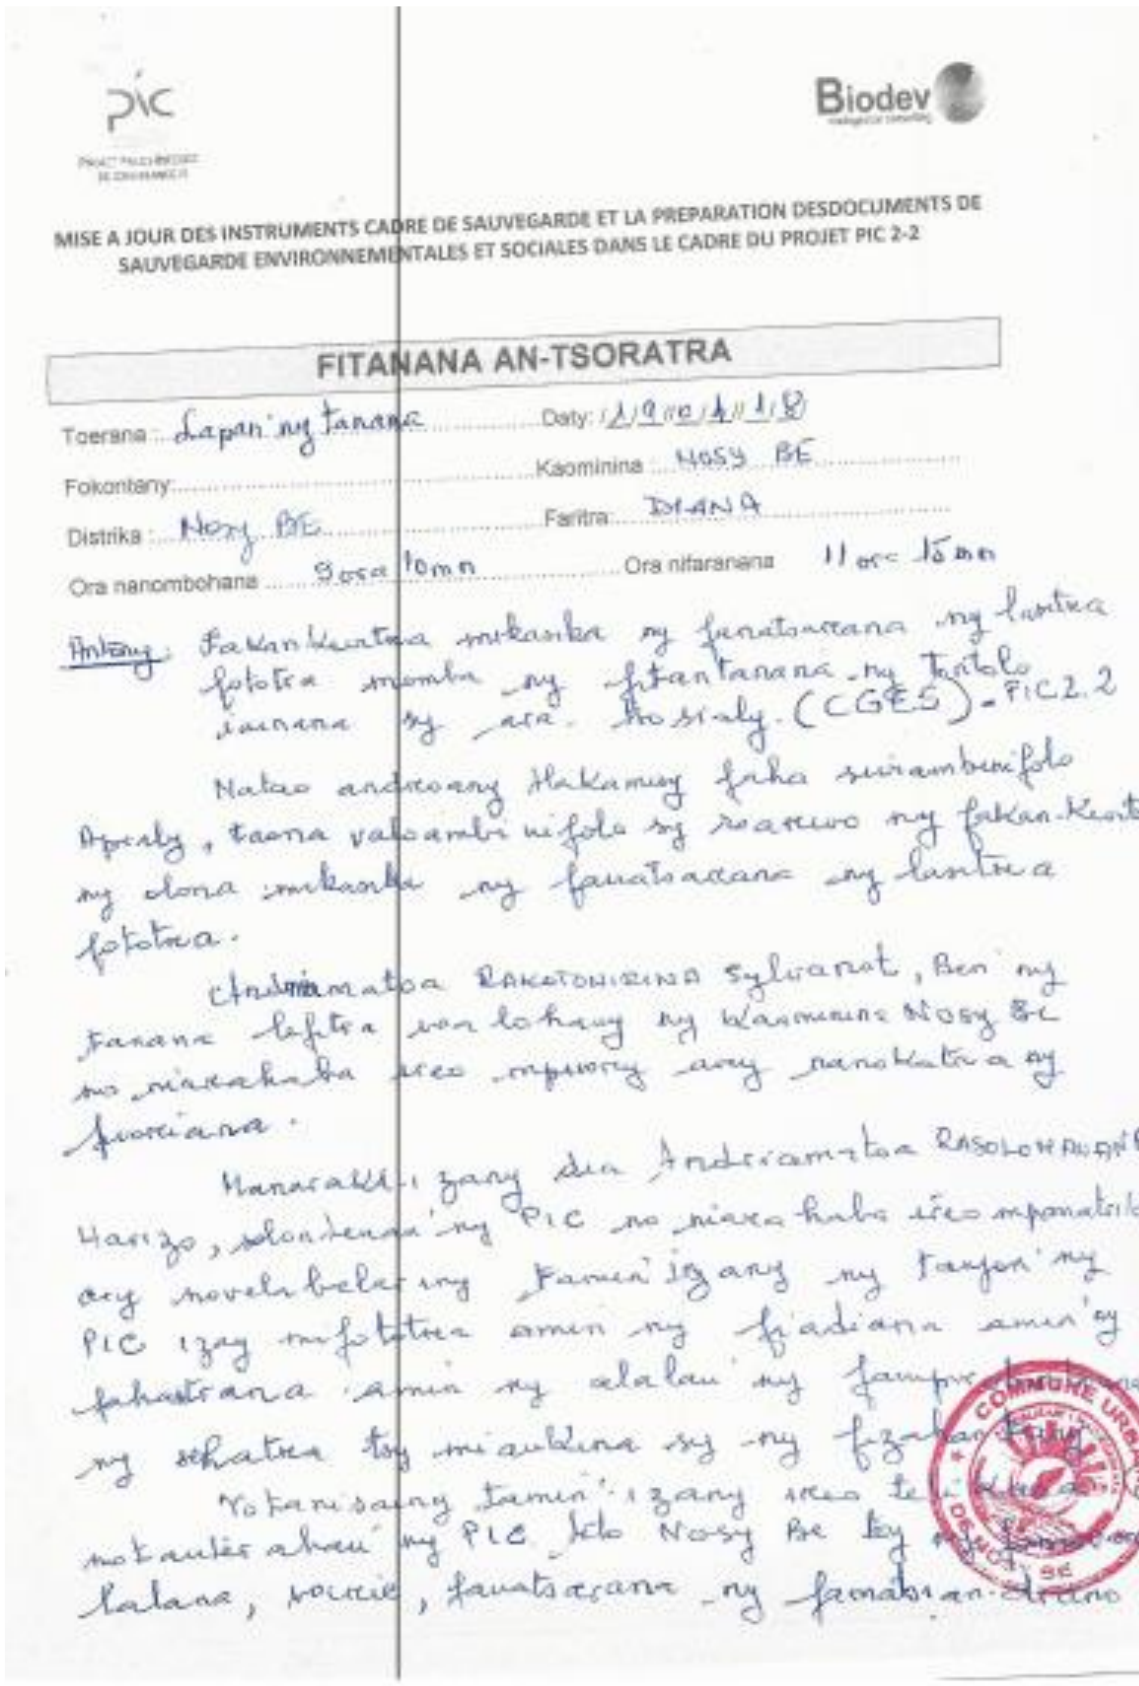 pic
Biodev
MISE A JOUR DES INSTRUMENTS CADRE DE SAUVEGARDE ET LA PREPARATION DESDOCUMENTS DE
SAUVEGARDE ENVIRONNEMENTALES ET SOCIALES DANS LE CADRE DU PROJET PIC 2-2
FITANANA AN-TSORATRA
Toerana : Lapan'ny tanana Daty: /1/9//0/4//1/8/
Fokontany: Kaominina : NOSY BE
Distrika : Nosy BE Faritra: DIANA
Ora nanombohana 9 ora 10mn Ora nifaranana 11 ora 15 mn
Antony : Fakan-kevitra mikasika ny fanatsarana ny lasitra
fototra momba ny fitantanana ny tontolo
iainana sy ara- sosialy. (CGES) - PIC2.2
Natao androany Alakamisy faha sivambinifolo
Aprily, taona valoambinifolo sy roarivo ny fakan-kevitr
ny olona mikasika ny fanatsarana ny lasitra
fototra.
Andriamatoa RAKOTONIRINA Sylvanot, Ben'ny
Tanana lefitra voalohany ny Kaominina Nosy Be
no niarahaba ireo mpivory ary nanokatra ny
fivoriana.
Manaraka izany dia Andriamatoa
Harizo, solontenan'ny PIC no niarahaba ireo
ary novelabelariny tamin'izany ny tanjon'ny
PIC izay mifototra amin ny fiadiana amin'ny
fahantrana amin ny alalan'ny
ny sehatra tsy miankina sy ny fizahantany
Notanisainy tamin'izany ireo
ny PIC teto Nosy Be toy ny
lalana, voirie, fanatsarana ny famatsian-drano
COMMUNE URB
DE NOSY BE